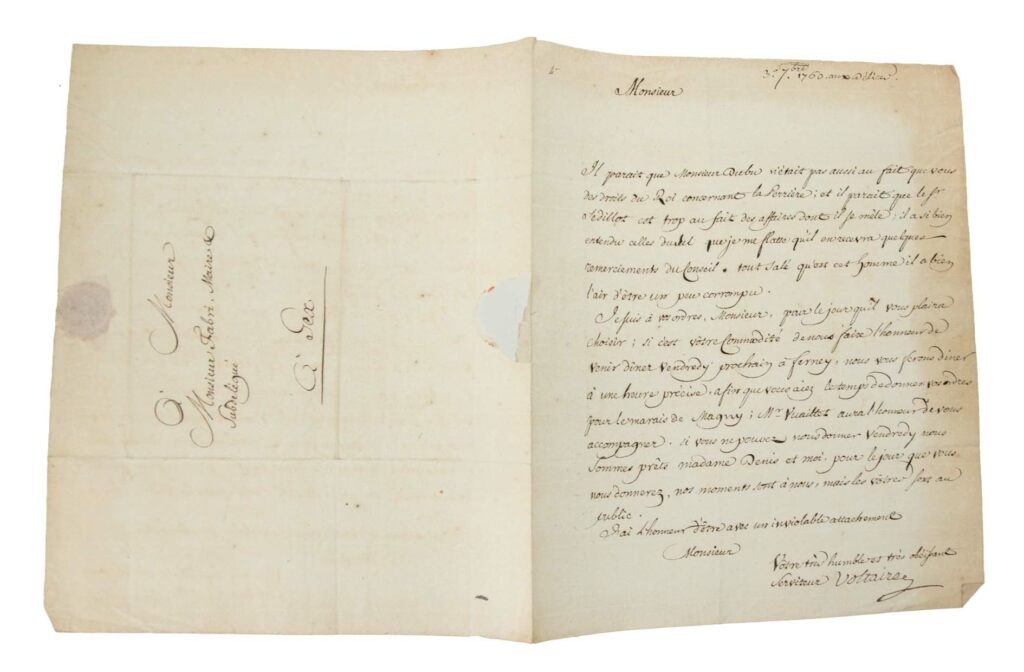 à
Monsieur
Monsieur Fabri, Maire &
Subdelegué
à Gex
3e. 7bre. 1760. aux Délices.
Monsieur
Il parait que Monsieur Diebu n'était pas aussi au fait que vous
des droits du Roi concernant la Perrière; et il parait que le Sr
Sedillot est trop au fait des affaires dont il se mêle; il a si bien
entendu celles du sel que je me flatte qu'il en recevra quelques
remerciements du Conseil. tout salé qu'est cet homme il a bien
l'air d'être un peu corrompu.
Je suis à vos ordres, Monsieur, pour le jour qu'il vous plaira
choisir; si c'est vôtre Commodité de nous faire l'honneur de
venir diner Vendredy prochain à ferney, nous vous ferons diner
à une heure précise, afin que vous aiez le temps de donner vos ordres
pour le marais de Magny; Mr. Vuaillet aura l'honneur de vous
accompagner. si vous ne pouvez nous donner Vendredy nous
sommes prêts madame Denis et moi, pour le jour que vous
nous donnerez, nos moments sont à nous, mais les vôtres sont au
public.
J'ai l'honneur d'être avec un inviolable attachement
Monsieur
Vôtre très humble et très obéissant
Serviteur Voltaire